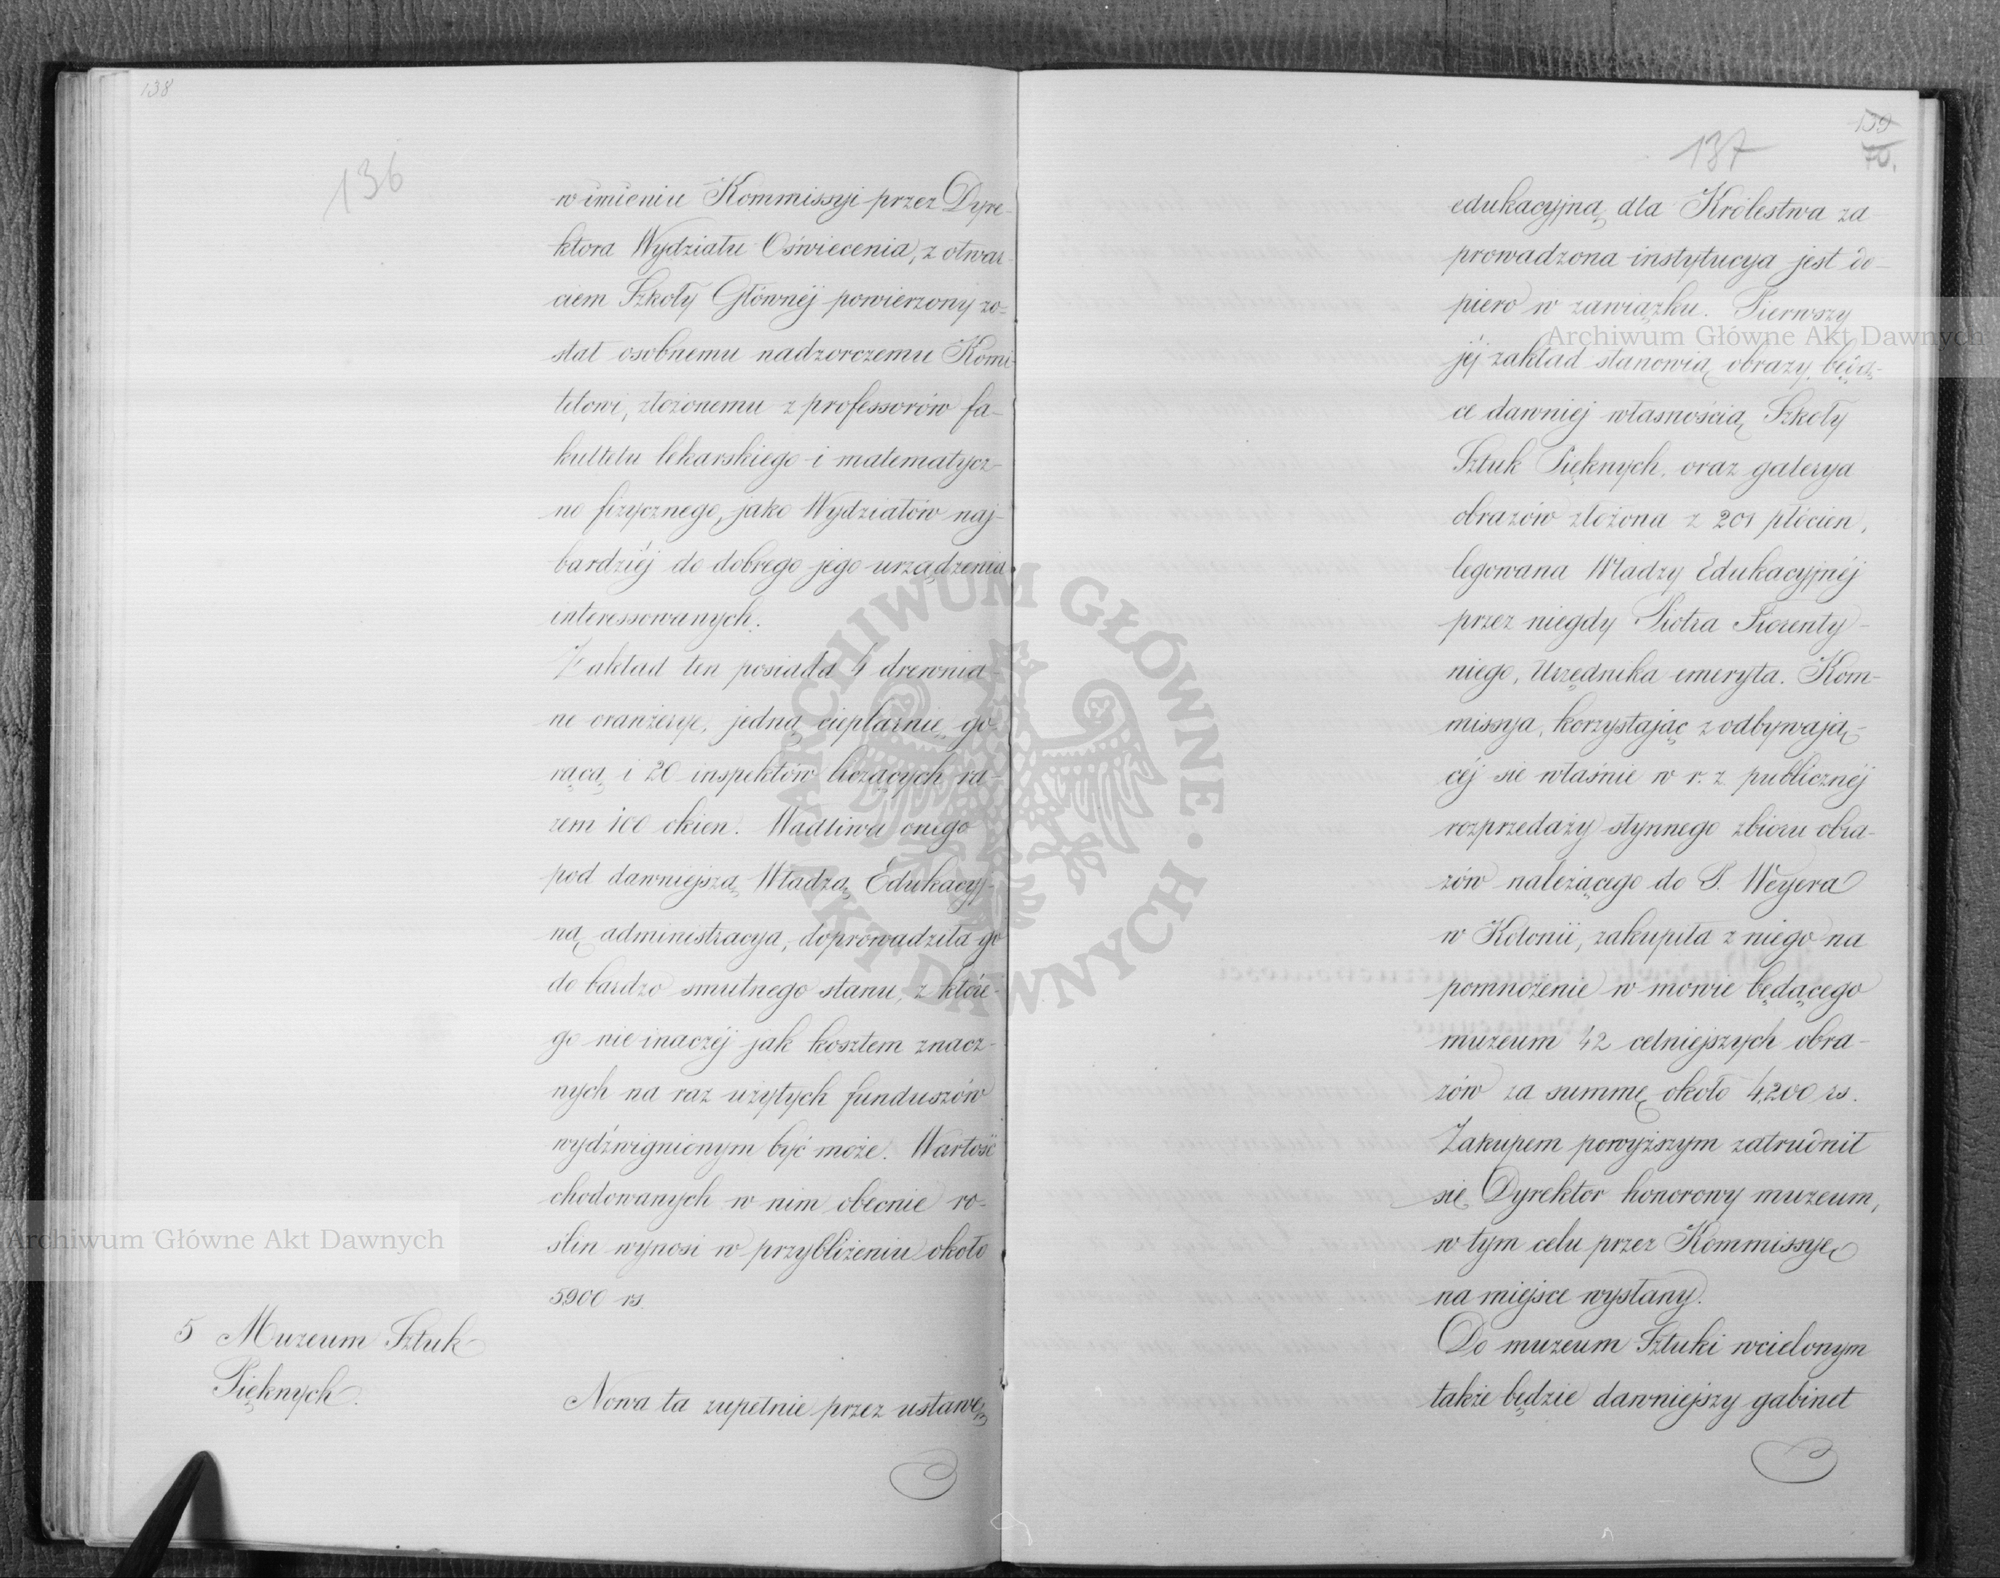 138
136
w imieniu Kommissyi przez Dyre-
ktora Wydziału Oświecenia, z otwar-
ciem Szkoły Głównéj powierzony zo-
stał osobnemu nadzorczemu Komi-
tetowi, złożonemu z professorów fa-
kultetu lekarskiego i matematycz-
no fizycznego, jako Wydziałów naj-
bardziéj do dobrego jego urządzenia
interessowanych.
Zakład ten posiada 4 drewnia-
ne oranżerye, jedną cieplarnię go-
rącą i 20 inspektów liczących ra-
zem 100 okien. Wadliwa onego
pod dawniejszą Władzą Edukacyj-
ną administracya, doprowadziła go
do bardzo smutnego stanu, z które-
go nie inaczéj jak kosztem znacz-
nych na raz użytych funduszów
wydźwignionym być może. Wartość
chodowanych w nim obecnie ro-
ślin wynosi w przybliżeniu około
5900 rs.
5 Muzeum Sztuk
Pięknych.
Nowa ta zupełnie przez ustawę
139
70.
137
edukacyjną dla Królestwa za-
prowadzona instytucya jest do-
piero w zawiązku. Pierwszy
jéj zakład stanowią obrazy będą-
ce dawniej własnością Szkoły
Sztuk Pięknych, oraz galerya
obrazów złożona z 201 płócien,
legowana Władzy Edukacyjnéj
przez niegdy Piotra Fiorenty-
niego, Urzędnika emeryta. Kom-
missya, korzystając z odbywają-
céj się właśnie w r. z. publicznéj
rozprzedaży słynnego zbioru obra-
zów należącego do P. Weyera
w Kolonii, zakupiła z niego na
pomnożenie w mowie będącego
muzeum 42 celniejszych obra-
zów za summę około 4,200 rs.
Zakupem powyższym zatrudnił
się Dyrektor honorowy muzeum,
w tym celu przez Kommissyę
na miejsce wysłany.
Do muzeum Sztuki wcielonym
także będzie dawniejszy gabinet
Archiwum Główne Akt Dawnych
Archiwum Główne Akt Dawnych
ARCHIWUM GŁÓWNE · AKT DAWNYCH ·